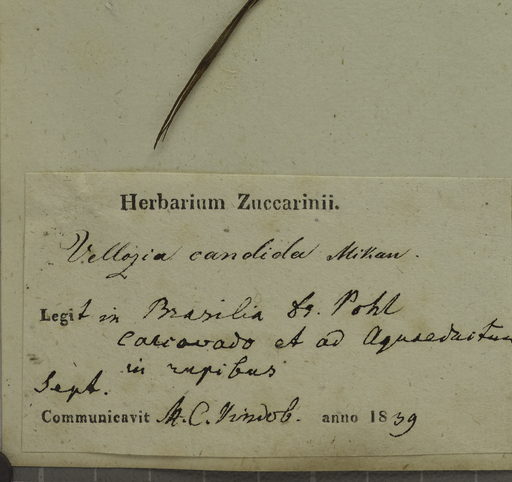 Herbarium Zuccarinii.
Vellozia candida Mikan.
Legit in Brasilia Dr. Pohl
Corcovado et ad Aquaeductum
in rupibus
Sept.
Communicavit M. C. Vindob. anno 1839